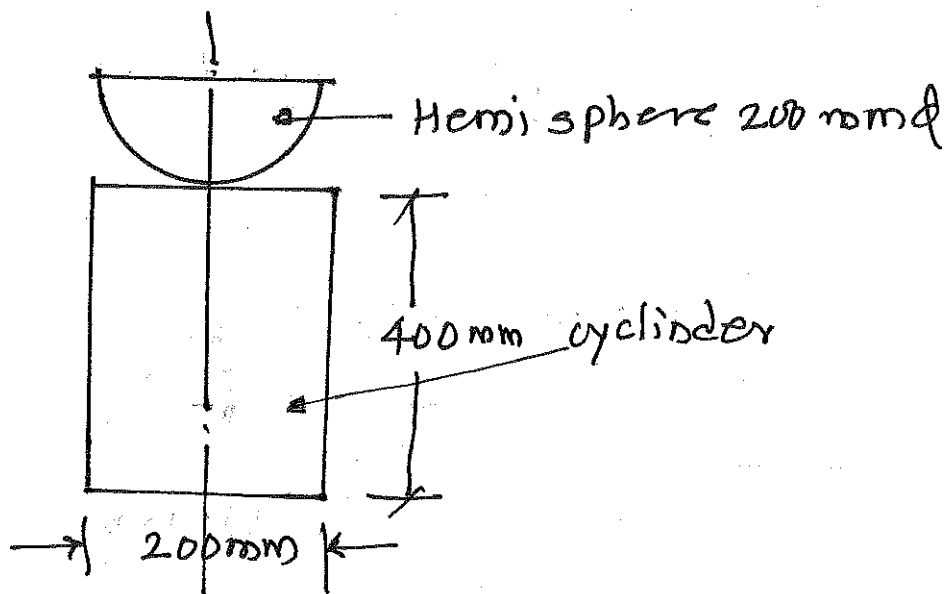 Hemi sphere 200 mm ϕ
400 mm cyclinder
200mm